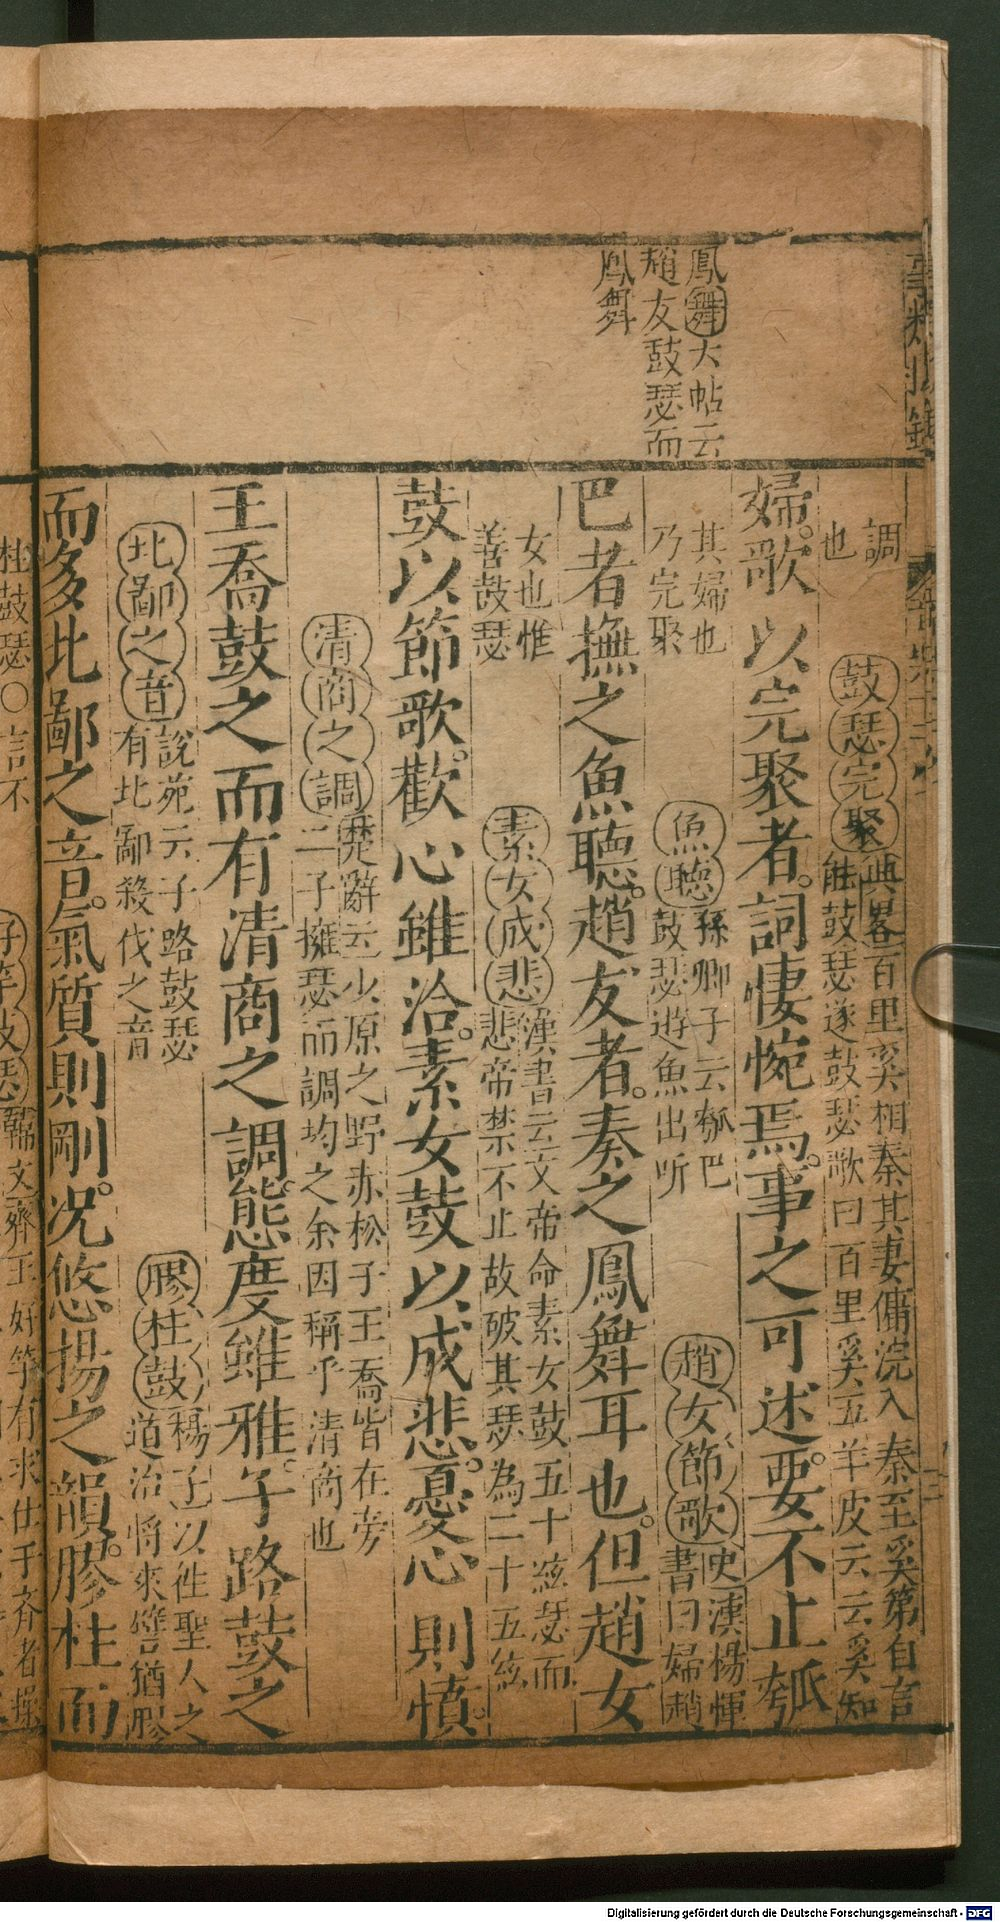 鳳舞大帖云
趙友鼓瑟而
鳳舞
調
也
鼓瑟完聚典畧百里奚相秦其妻傭浣入秦至奚第自言
能鼓瑟遂鼓瑟歌曰百里奚五羊皮云云奚知
婦歌以完聚者詞悽惋焉事之可述要不止瓠
其婦也
乃完聚
魚聴孫卿子云瓠巴
鼓瑟遊魚出听
趙女節歌史漢楊惲
書曰婦趙
巴者撫之魚聴趙友者奏之鳳舞耳也但趙女
女也惟
善鼓瑟
素女成悲漢書云文帝命素女鼓五十絃瑟而
悲帝禁不止故破其瑟為二十五絃
鼓以節歌歡心雖洽素女鼓以成悲憂心則憤
清商之調楚辭云少原之野赤松子王喬皆在旁
二子擁瑟而調均之余因稱乎清商也
王喬鼓之而有清商之調態度雖雅子路鼓之
北鄙之音說苑云子路鼓瑟
有北鄙殺伐之音
膠柱鼓楊子以徃聖人之
道治將來譬猶膠
而多北鄙之音氣質則剛况悠揚之韻膠柱而
柱鼓瑟○言不
韓文齊王好竽有求仕于齊者操
Digitalisierung gefördert durch die Deutsche Forschungsgemeinschaft - DFG